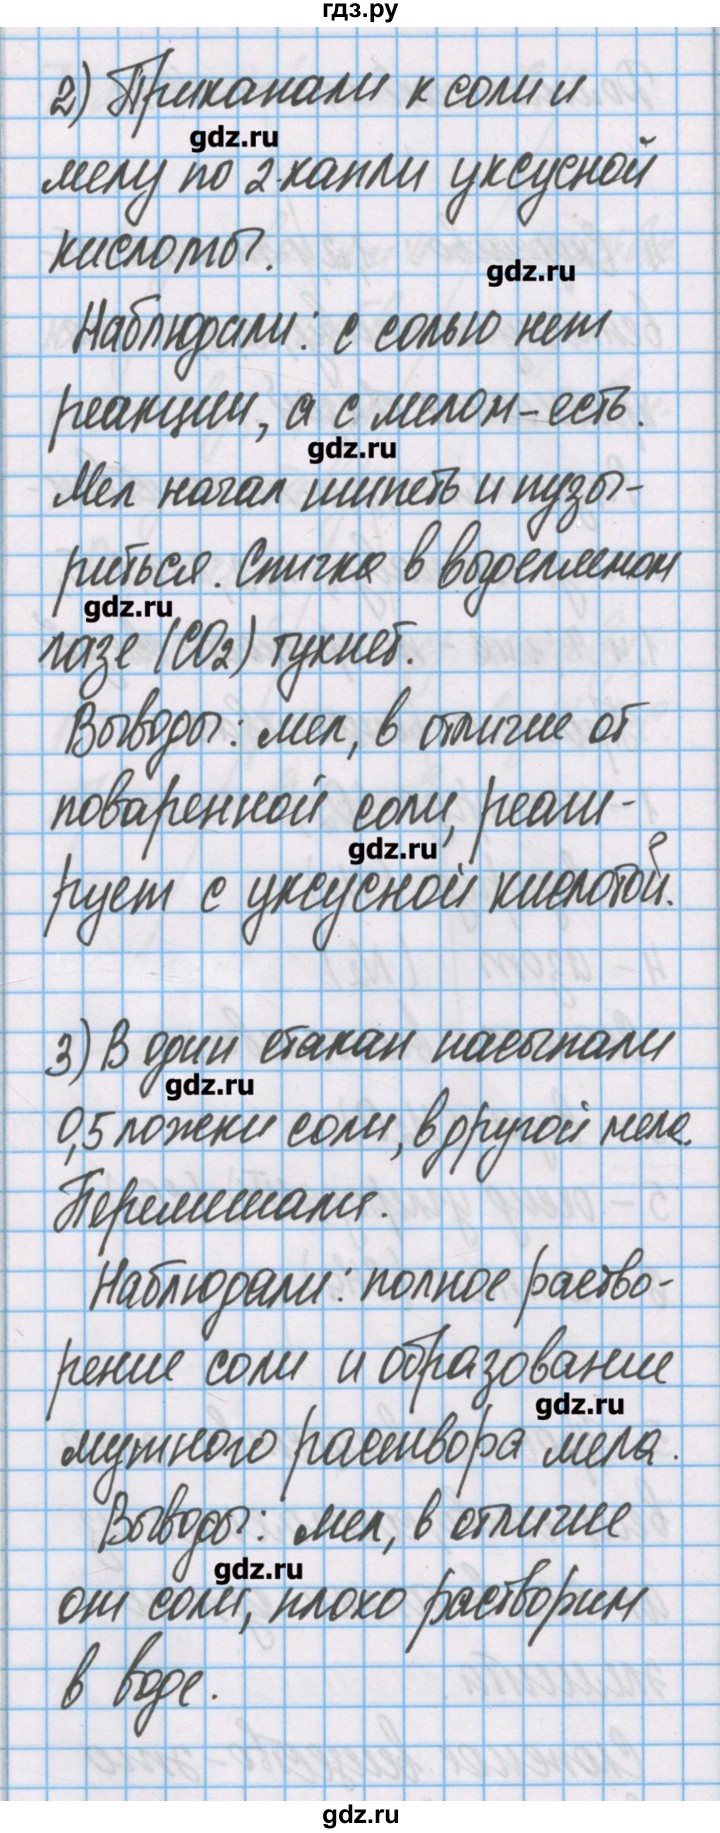 гдз.ру
2) Прикапали к соли и
gdz.ru
мелу по 2 капли уксусной
кислоты.
gdz.ru
Наблюдали: с солью нет
реакции, а с мелом - есть.
gdz.ru
Мел начал шипеть и пузы-
риться. Спичка в выделенном
gdz.ru
газе (CO2) тухнет.
Выводы: мел, в отличие от
поваренной соли, реаги-
gdz.ru
рует с уксусной кислотой.
3) В один стакан насыпали
gdz.ru
0,5 ложки соли, в другой мела.
Перемешали.
Наблюдали: полное раство-
рение соли и образование
gdz.ru
мутного раствора мела.
Выводы: мел, в отличие
gdz.ru
от соли, плохо растворим
в воде.
gdz.ru